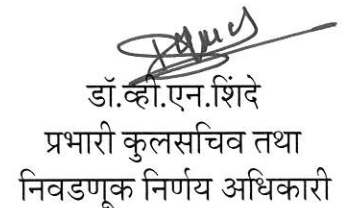 डॉ.व्ही.एन.शिंदे
प्रभारी कुलसचिव तथा
निवडणूक निर्णय अधिकारी